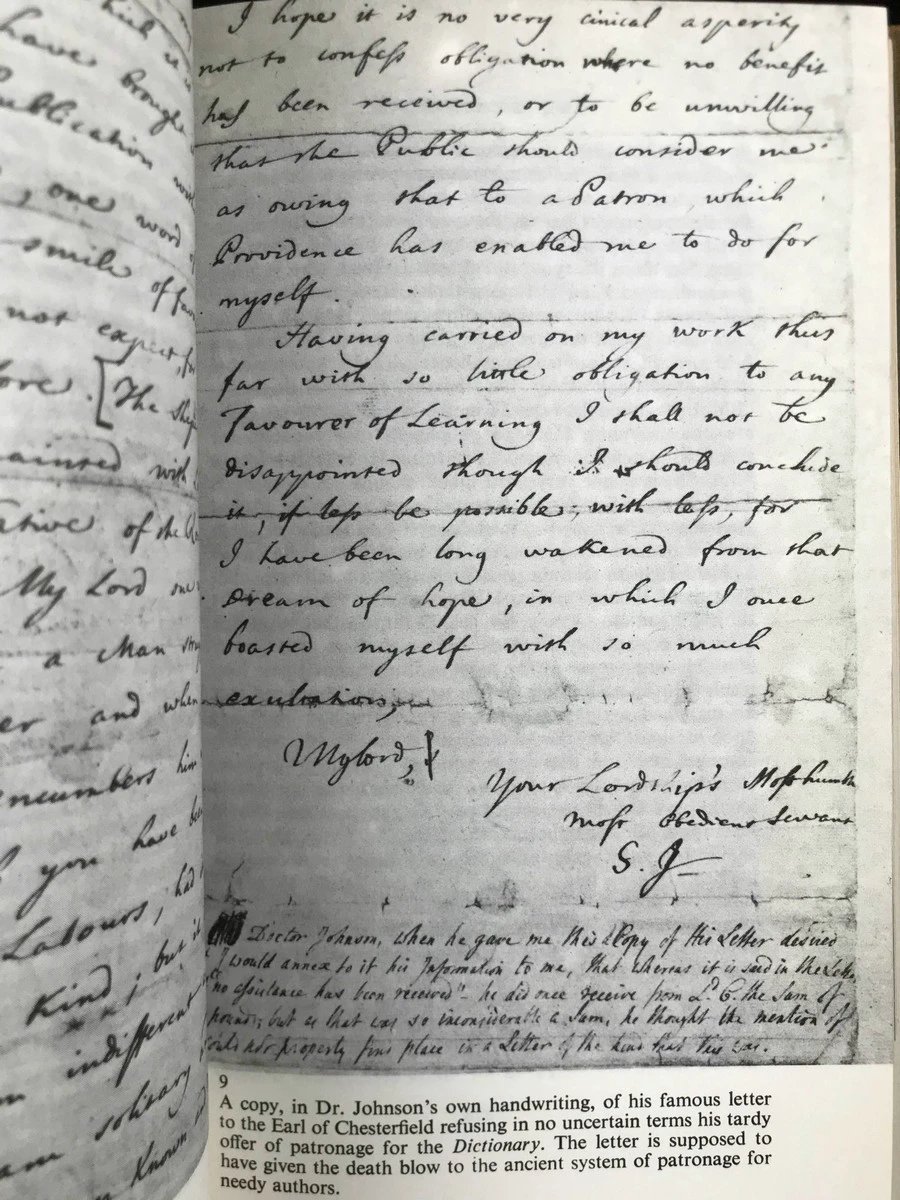 which it is
have brough
Publication
, one word
smile of fav
not expect, for
fore. [The shep
ainted with
ative of the Ro
My Lord one
a Man stru
er and when
encumbers him
you have bee
Labours, had
Kind; but it
indifferent
am solitary
Known
I hope it is no very cinical asperity
not to confess obligation where no benefit
has been received, or to be unwilling
that the Public should consider me
as owing that to a Patron, which
Providence has enabled me to do for
myself.
Having carried on my work thus
far with so little obligation to any
Favourer of Learning I shall not be
disappointed though I should conclude
it, if less be possible, with less, for
I have been long wakened from that
Dream of hope, in which I once
boasted myself with so much
exultation,
My lord,
Your Lordship's Most humble
most obedient Servant
S. J
Doctor Johnson, when he gave me this Copy of His Letter desired
I would annex to it his Information to me, that whereas it is said in the Letter
no assistance has been received" he did once receive from Ld. C. the Sum of
pounds; but as that was so inconsiderable a Sum, he thought the mention of
could not properly find place in a Letter of the kind that this was.
9
A copy, in Dr. Johnson's own handwriting, of his famous letter
to the Earl of Chesterfield refusing in no uncertain terms his tardy
offer of patronage for the Dictionary. The letter is supposed to
have given the death blow to the ancient system of patronage for
needy authors.